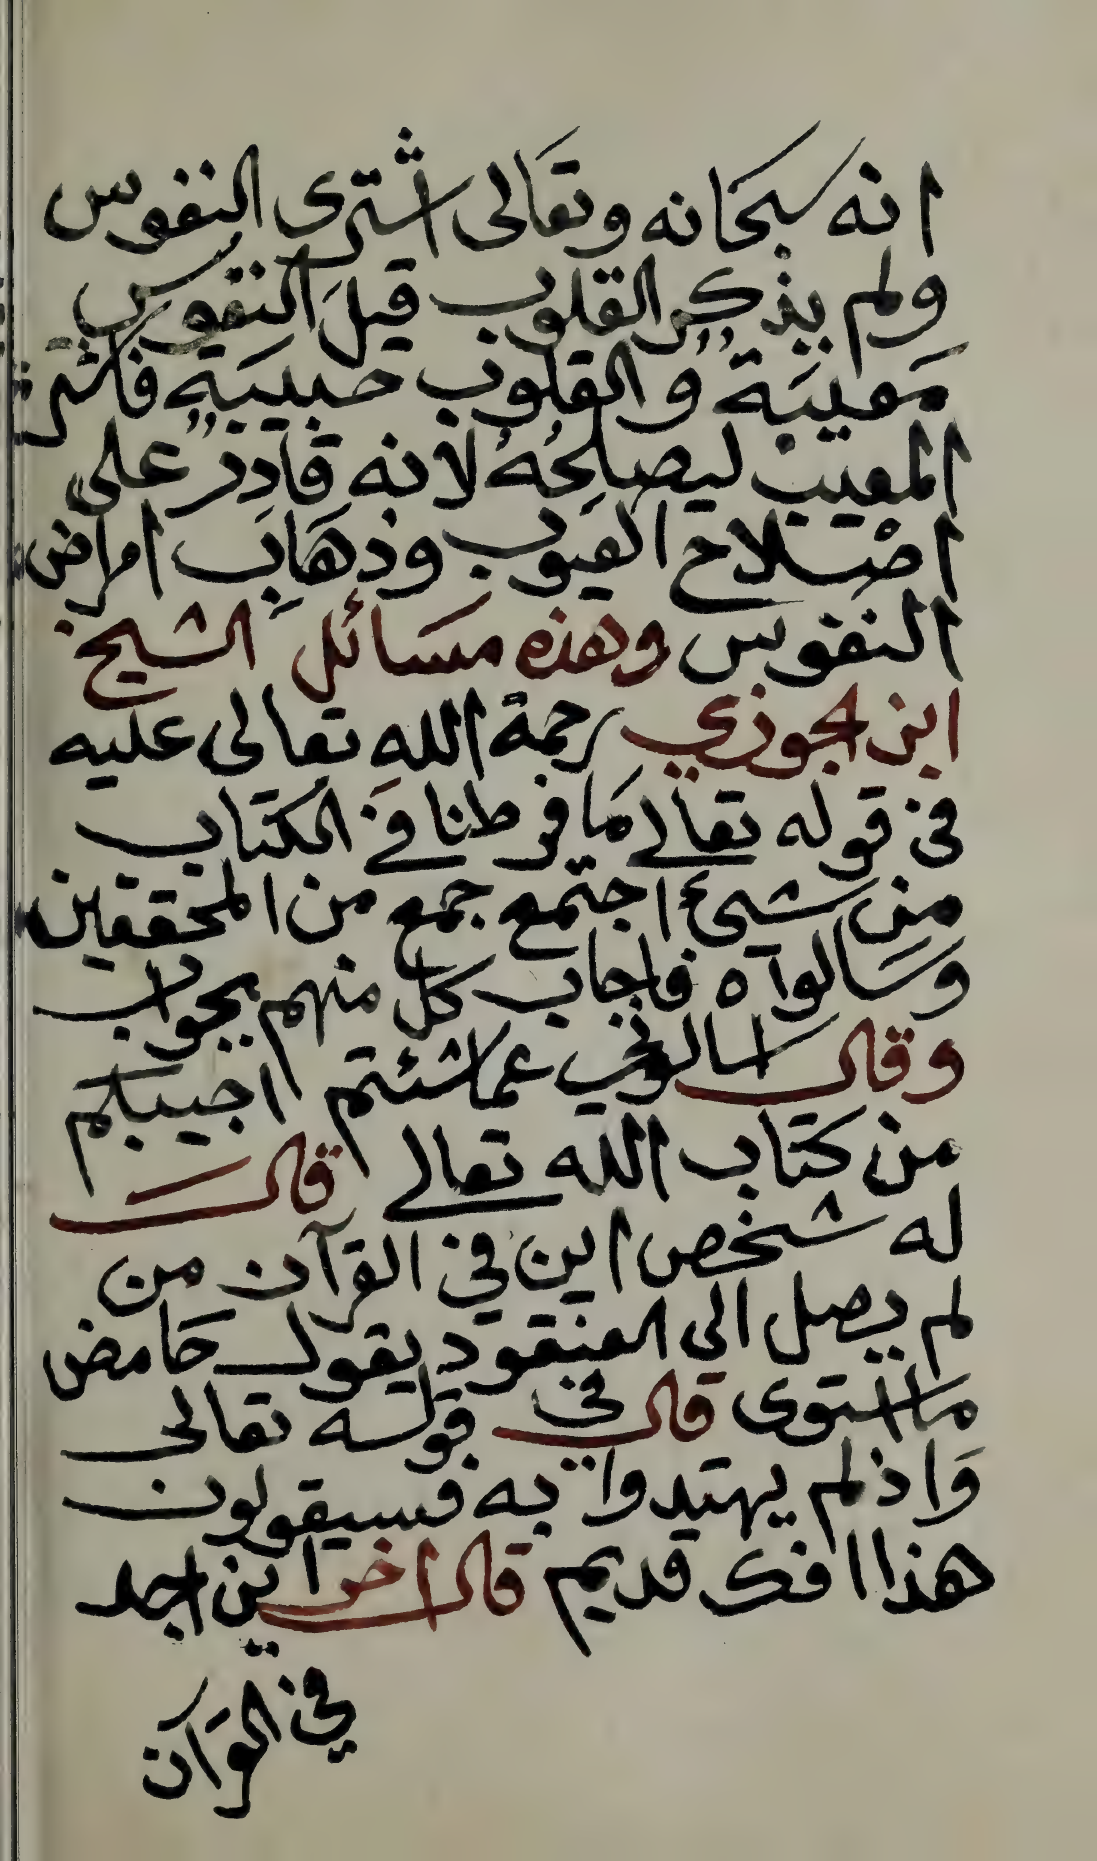 انه سبحانه وتعالى اشترى النفوس
ولم يذكر القلوب قيل النفوس
معيبة والقلوب حبيبة فاشترى
المعيب ليصلحه لانه قادر على
اصلاح العيوب وذهاب امراض
النفوس وهذه مسائل الشيخ
ابن الجوزي رحمة الله تعالى عليه
في قوله تعالى ما فرطنا في الكتاب
من شيئ اجتمع جمع من المحققين
وسالواه فاجاب كل منهم بجواب
وقال اسالوني عما شئتم اجيبكم
من كتاب الله تعالى قال
له شخص اين في القرآن من
لم يصل الى العنقود يقول حامض
ما استوى قال في قوله تعالى
واذ لم يهتدوا به فسيقولون
هذا افك قديم قال اخر اين اجد
في القرآن